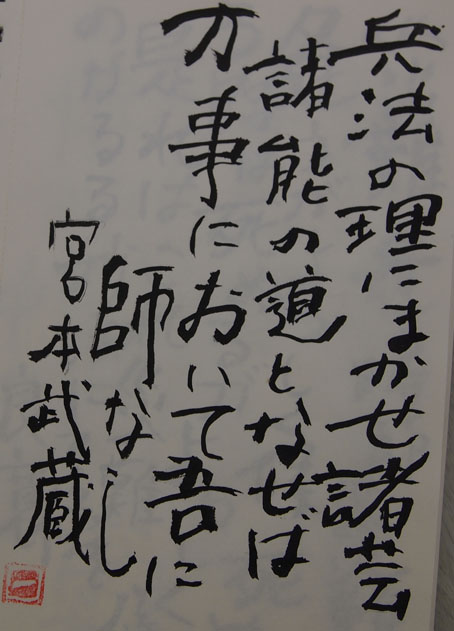 兵法の理にまかせ諸芸
諸能の道となせば
万事において吾に
師なし
宮本武蔵